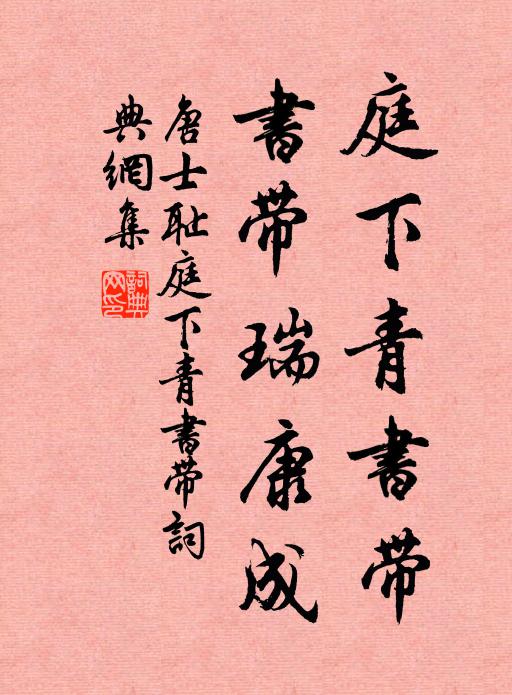 庭下青書带
書带瑞康成
唐士耻庭下青書带詞
典網集
詞典
网印